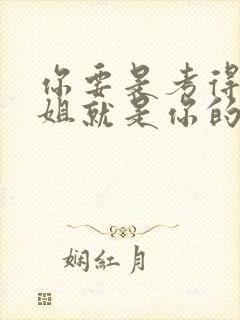 你要是考得
姐就是你的
娴红月